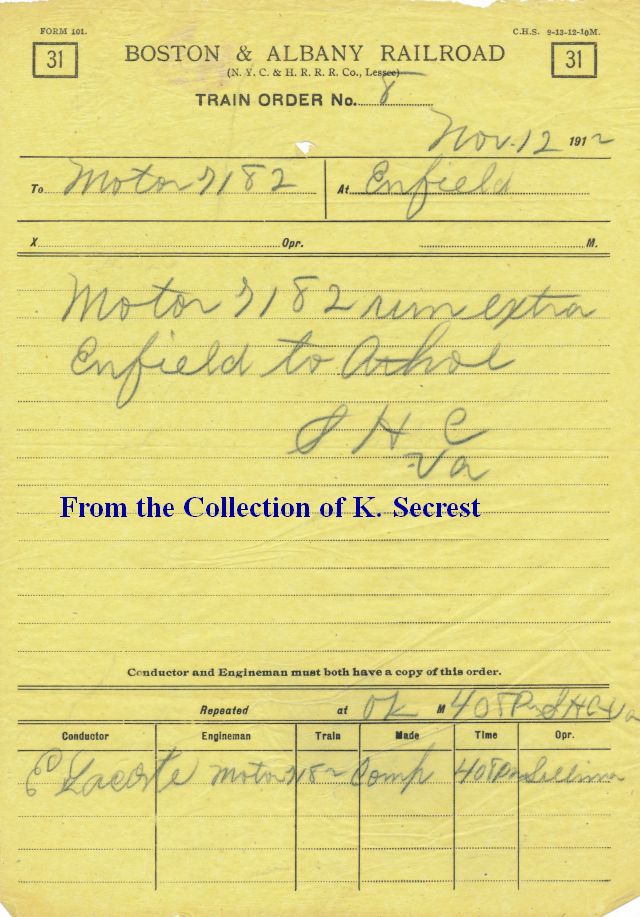 FORM 101. C.H.S. 9-13-12-10M.
31 BOSTON & ALBANY RAILROAD 31
(N. Y. C. & H. R. R. R. Co., Lessee)
TRAIN ORDER No. 8
Nov. 12 1912
To Motor 7182 At Enfield
X Opr. M.
Motor 7182 run extra
Enfield to Athol
J H C
Va
From the Collection of K. Secrest
Conductor and Engineman must both have a copy of this order.
Repeated at OK M 408P JHC Va
Conductor Engineman Train Made Time Opr.
E Lacoste Motor 7182 Comp 408Pm